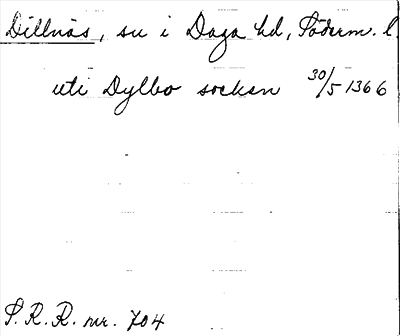 Dillnäs, sn i Daga hd, Söderm. l.
uti Dylbo socken 30/5 1366
S.R.R. nr. 704